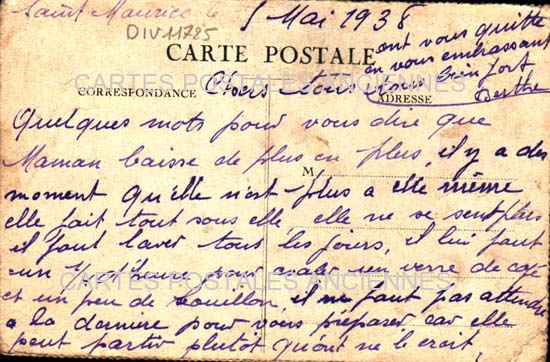 Saint Maurice le 5 Mai 1938
DIV11785
CARTE POSTALE
CARTES POSTALES ANCIENNES
CORRESPONDANCE
ADRESSE
Chers tous
Quelques mots pour vous dire que
Maman baisse de plus en plus, il y a des
M
moment qu'elle n'est plus a elle même
elle fait tout sous elle, elle ne se sent plus
il faut laver tous les jours, il lui faut
un pour avaler un verre de
CARTES POSTALES ANCIENNES
et un peu de bouillon, il ne faut pas attendre
a la dernière pour vous préparer car elle
peut partir plutôt qu'on ne le croit,
ont vous quitte
en vous embrassant
tous bien fort
Berthe